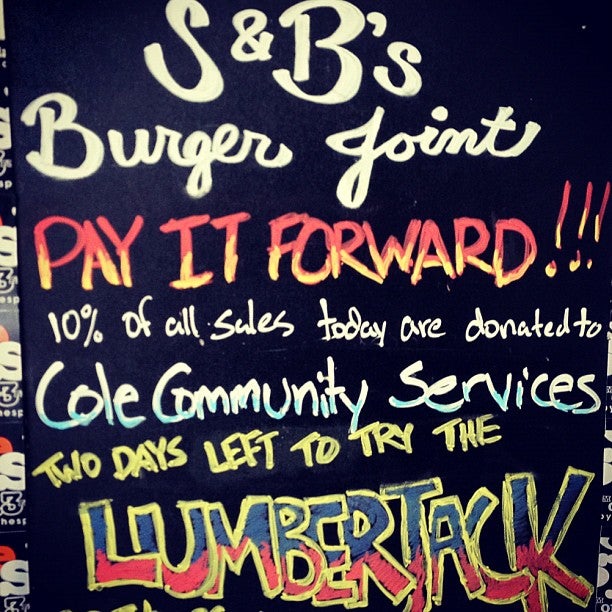 S&B's
Burger Joint
PAY IT FORWARD!!!
10% of all sales today are donated to
Cole Community Services
TWO DAYS LEFT TO TRY THE
LUMBERJACK